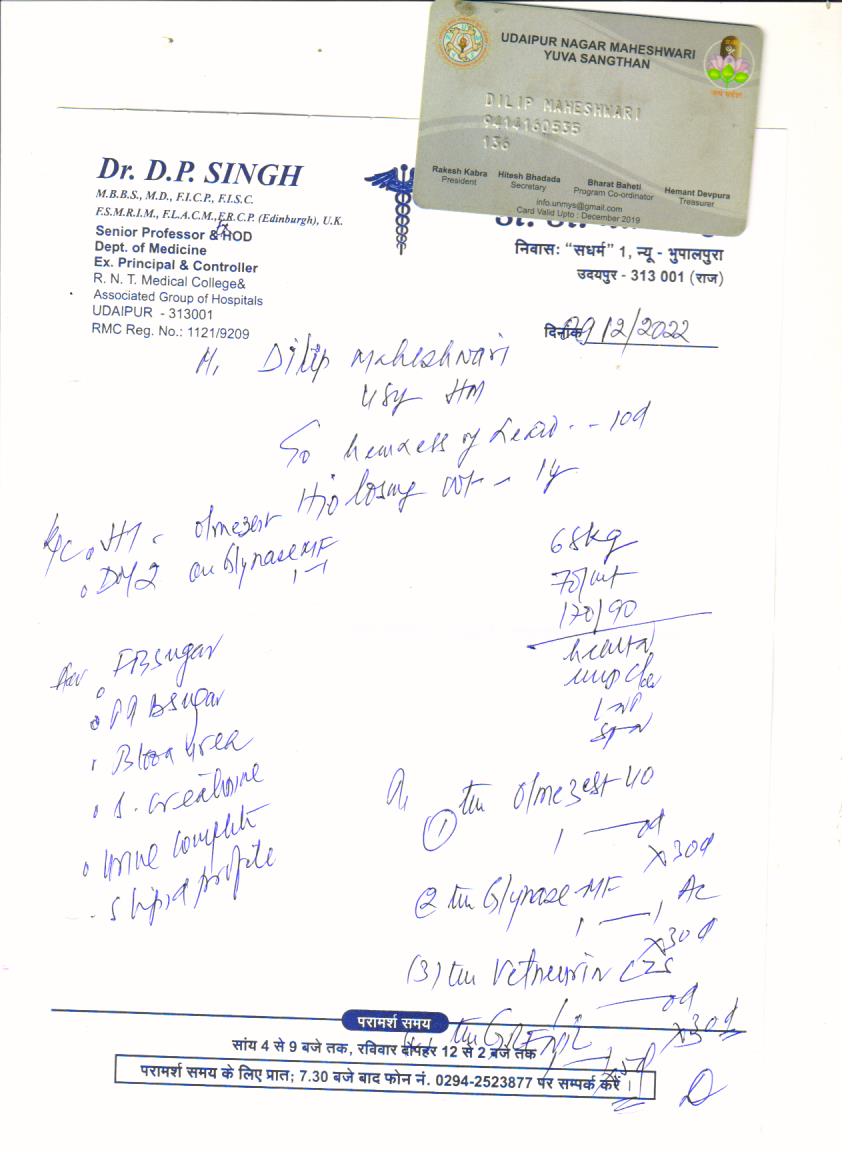 UDAIPUR NAGAR MAHESHWARI
YUVA SANGTHAN
DILIP MAHESHWARI
9414160535
136
Rakesh Kabra
President
Hitesh Bhadada
Secretary
Bharat Baheti
Program Co-ordinator
Hemant Devpura
Treasurer
info.unmys@gmail.com
Card Valid Upto : December 2019
Dr. D.P. SINGH
M.B.B.S., M.D., F.I.C.P., F.I.S.C.
F.S.M.R.I.M., F.L.A.C.M., F.R.C.P. (Edinburgh), U.K.
Senior Professor & HOD
Dept. of Medicine
Ex. Principal & Controller
R. N. T. Medical College&
Associated Group of Hospitals
UDAIPUR - 313001
RMC Reg. No.: 1121/9209
निवास: "सधर्म" 1, न्यू - भुपालपुरा
उदयपुर - 313 001 (राज)
दिनांक 09/12/2022
Dilip Maheshwari
48y HM
- - 10d
H/o losing wt - 1y
K/C HT - Olmezest
DM2 on Glynase MF
1-1
68kg
70/mt
170/90
Adv FBsugar
PP Bsugar
Blood Urea
S. Creatinine
Urine Complete
S lipid profile
(1) tm Olmezest 40
1 — od
x 30d
(2) tm Glynase MF AC
1 — 1
x 30d
(3) tm
1 — od
x 30d
परामर्श समय
सांय 4 से 9 बजे तक, रविवार दोपहर 12 से 2 बजे तक
परामर्श समय के लिए प्रात; 7.30 बजे बाद फोन नं. 0294-2523877 पर सम्पर्क करें ।